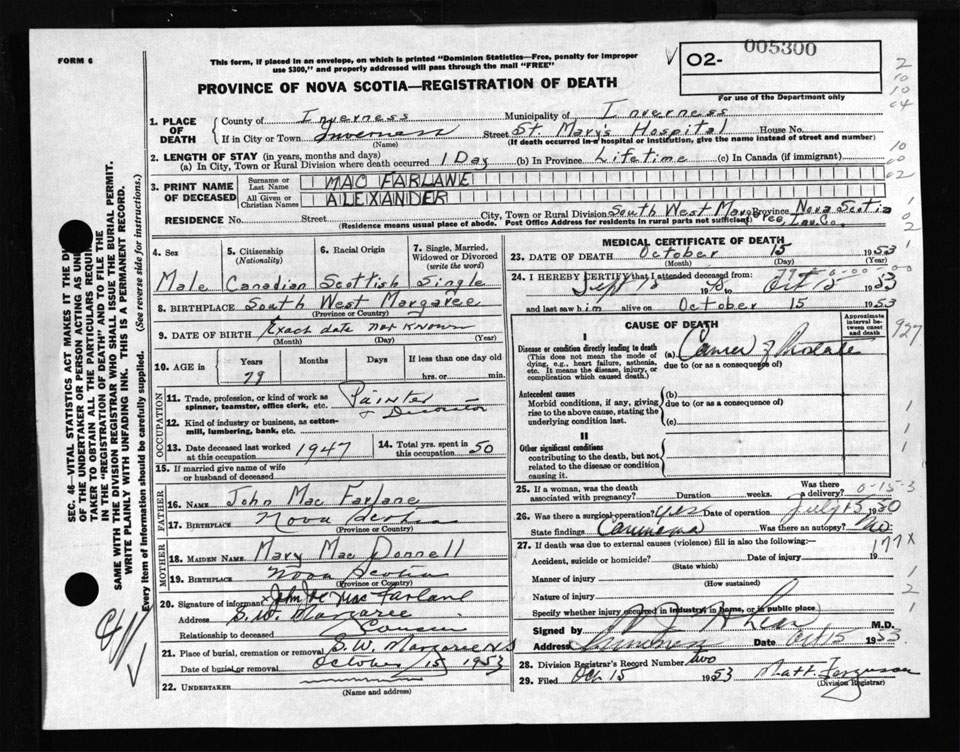 FORM 6
This form, if placed in an envelope, on which is printed "Dominion Statistics—Free, penalty for improper
use $300," and properly addressed will pass through the mail "FREE"
PROVINCE OF NOVA SCOTIA—REGISTRATION OF DEATH
O2-
005300
For use of the Department only
2
10
10
04
1. PLACE OF DEATH
County of Inverness Municipality of Inverness
If in City or Town Inverness Street St Marys Hospital House No.
(Name) (If death occurred in a hospital or institution, give the name instead of street and number)
2. LENGTH OF STAY (in years, months and days)
(a) In City, Town or Rural Division where death occurred 1 Day (b) In Province Lifetime (c) In Canada (if immigrant)
3. PRINT NAME OF DECEASED
Surname or Last Name MAC FARLANE
All Given or Christian Names ALEXANDER
RESIDENCE No. Street City, Town or Rural Division South West Margaree Province Nova Scotia
(Residence means usual place of abode. Post Office Address for residents in rural parts not sufficient)
4. Sex
Male
5. Citizenship
(Nationality)
Canadian
6. Racial Origin
Scottish
7. Single, Married, Widowed or Divorced
(write the word)
Single
8. BIRTHPLACE South West Margaree
(Province or Country)
9. DATE OF BIRTH Exact date not known
(Month) (Day) (Year)
10. AGE in Years Months Days If less than one day old
79 hrs. or min.
OCCUPATION
11. Trade, profession, or kind of work as
spinner, teamster, office clerk, etc. Painter
& Decorator
12. Kind of industry or business, as cotton-
mill, lumbering, bank, etc.
13. Date deceased last worked
at this occupation 1947
14. Total yrs. spent in
this occupation 50
15. If married give name of wife
or husband of deceased
FATHER
16. NAME John Mac Farlane
17. BIRTHPLACE Nova Scotia
(Province or Country)
MOTHER
18. MAIDEN NAME Mary Mac Donnell
19. BIRTHPLACE Nova Scotia
(Province or Country)
20. Signature of informant John Mac Farlane
Address S.W. Margaree
Relationship to deceased Cousin
21. Place of burial, cremation or removal S.W. Margaree N.S
Date of burial or removal October 15 1953
22. UNDERTAKER
(Name and address)
MEDICAL CERTIFICATE OF DEATH
23. DATE OF DEATH October 15 1953
(Month) (Day) (Year)
24. I HEREBY CERTIFY that I attended deceased from
Oct 15 1953
and last saw him alive on October 15 1953
CAUSE OF DEATH
Approximate interval between onset and death
I
Disease or condition directly leading to death
(This does not mean the mode of dying, e.g., heart failure, asthenia, etc. It means the disease, injury, or complication which caused death.)
(a) Cancer of Prostate
due to (or as a consequence of)
Antecedent causes
Morbid conditions, if any, giving rise to the above cause, stating the underlying condition last.
(b)
due to (or as a consequence of)
(c)
II
Other significant conditions
contributing to the death, but not related to the disease or condition causing it.
927
25. If a woman, was the death
associated with pregnancy? Duration weeks. Was there a delivery?
26. Was there a surgical operation? yes Date of operation July 15 1950
State findings Carcinoma Was there an autopsy? No
27. If death was due to external causes (violence) fill in also the following: 177X
Accident, suicide or homicide? Date of injury 19
(State which)
Manner of injury
(How sustained)
Nature of injury
Specify whether injury occurred in industry, in home, or in public place
Signed by M.D.
Address Inverness Date Oct 15 1953
28. Division Registrar's Record Number two
29. Filed Oct 15 1953 Matt. Ferguson
(Division Registrar)
SEC. 46—VITAL STATISTICS ACT MAKES IT THE
OF THE UNDERTAKER OR PERSON ACTING AS
TAKER TO OBTAIN ALL THE PARTICULARS
IN THE "REGISTRATION OF DEATH" AND TO FILE THE
SAME WITH THE DIVISION REGISTRAR WHO SHALL ISSUE THE BURIAL PERMIT.
WRITE PLAINLY WITH UNFADING INK. THIS IS A PERMANENT RECORD.
Every item of Information should be carefully supplied. (See reverse side for instructions.)